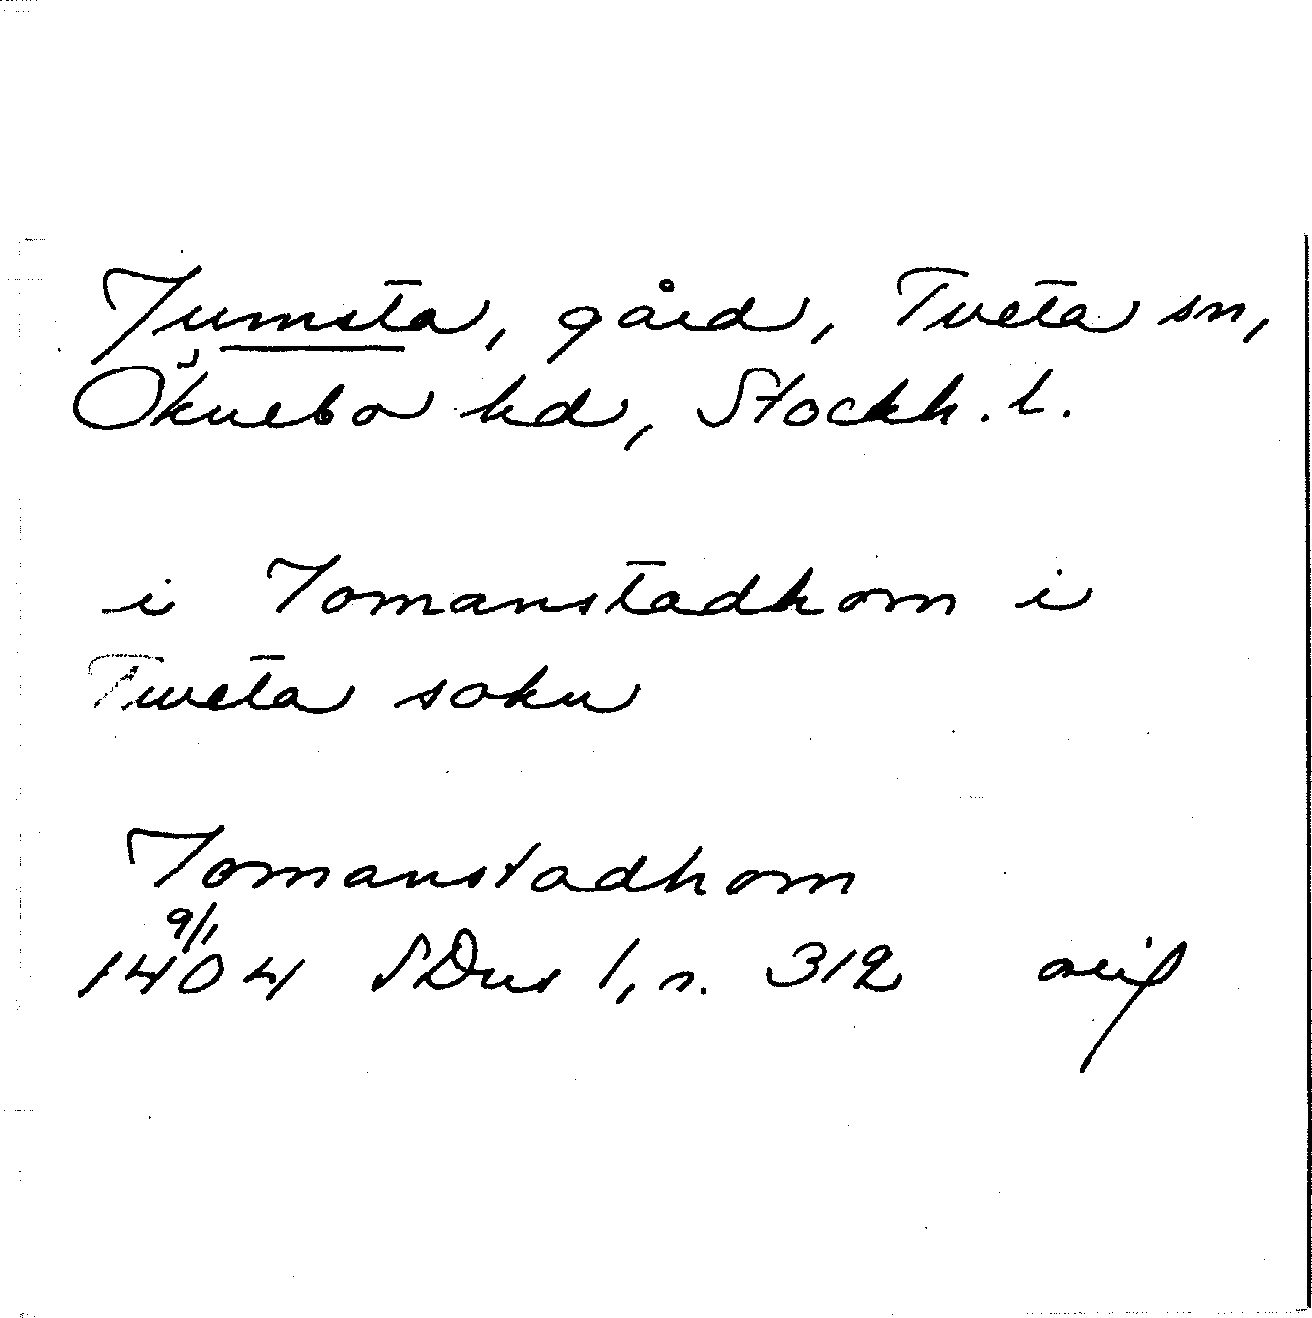 Jumsta, gård, Tveta sn,
Öknebo hd, Stockh. l.
i Jomanstadhom i
Tweta sokn
Jomanstadhom
9/1
1404 SDns 1, s. 312 orig